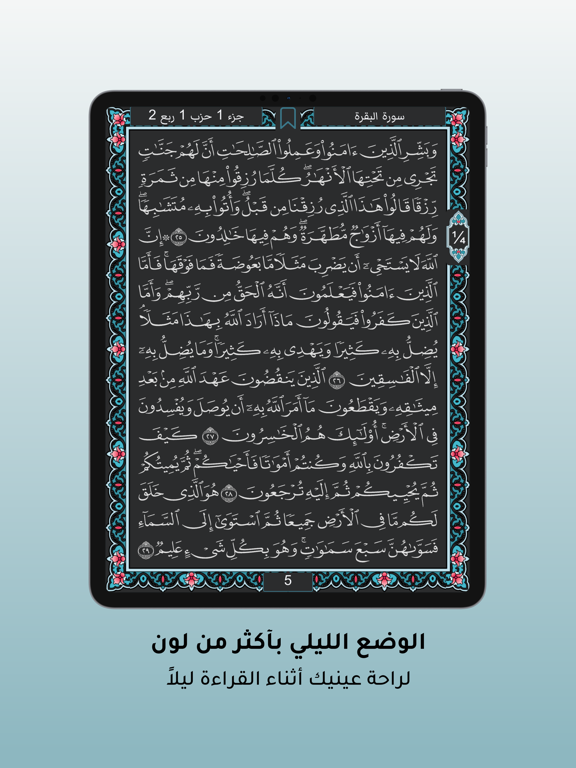 جزء 1 حزب 1 ربع 2
سورة البقرة
وَبَشِّرِ ٱلَّذِينَ ءَامَنُوا۟ وَعَمِلُوا۟ ٱلصَّٰلِحَٰتِ أَنَّ لَهُمْ جَنَّٰتٍ
تَجْرِى مِن تَحْتِهَا ٱلْأَنْهَٰرُ ۖ كُلَّمَا رُزِقُوا۟ مِنْهَا مِن ثَمَرَةٍ
رِّزْقًا قَالُوا۟ هَٰذَا ٱلَّذِى رُزِقْنَا مِن قَبْلُ ۖ وَأُتُوا۟ بِهِۦ مُتَشَٰبِهًا ۖ
وَلَهُمْ فِيهَآ أَزْوَٰجٌ مُّطَهَّرَةٌ ۖ وَهُمْ فِيهَا خَٰلِدُونَ ٢٥ ۞ إِنَّ
1/4
ٱللَّهَ لَا يَسْتَحْىِۦٓ أَن يَضْرِبَ مَثَلًا مَّا بَعُوضَةً فَمَا فَوْقَهَا ۚ فَأَمَّا
ٱلَّذِينَ ءَامَنُوا۟ فَيَعْلَمُونَ أَنَّهُ ٱلْحَقُّ مِن رَّبِّهِمْ ۖ وَأَمَّا
ٱلَّذِينَ كَفَرُوا۟ فَيَقُولُونَ مَاذَآ أَرَادَ ٱللَّهُ بِهَٰذَا مَثَلًا ۘ
يُضِلُّ بِهِۦ كَثِيرًا وَيَهْدِى بِهِۦ كَثِيرًا ۚ وَمَا يُضِلُّ بِهِۦٓ
إِلَّا ٱلْفَٰسِقِينَ ٢٦ ٱلَّذِينَ يَنقُضُونَ عَهْدَ ٱللَّهِ مِنۢ بَعْدِ
مِيثَٰقِهِۦ وَيَقْطَعُونَ مَآ أَمَرَ ٱللَّهُ بِهِۦٓ أَن يُوصَلَ وَيُفْسِدُونَ
فِى ٱلْأَرْضِ ۚ أُو۟لَٰٓئِكَ هُمُ ٱلْخَٰسِرُونَ ٢٧ كَيْفَ
تَكْفُرُونَ بِٱللَّهِ وَكُنتُمْ أَمْوَٰتًا فَأَحْيَٰكُمْ ۖ ثُمَّ يُمِيتُكُمْ
ثُمَّ يُحْيِيكُمْ ثُمَّ إِلَيْهِ تُرْجَعُونَ ٢٨ هُوَ ٱلَّذِى خَلَقَ
لَكُم مَّا فِى ٱلْأَرْضِ جَمِيعًا ثُمَّ ٱسْتَوَىٰٓ إِلَى ٱلسَّمَآءِ
فَسَوَّىٰهُنَّ سَبْعَ سَمَٰوَٰتٍ ۚ وَهُوَ بِكُلِّ شَىْءٍ عَلِيمٌ ٢٩
5
الوضع الليلي بأكثر من لون
لراحة عينيك أثناء القراءة ليلاً